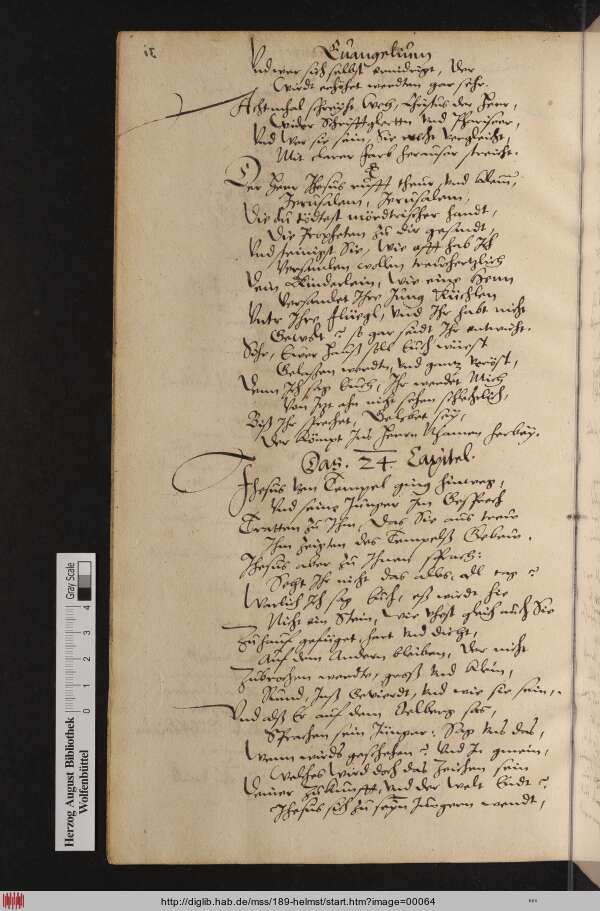 Euangelium
Vnd wer sich selbst ernidrigt, der
Wirdt erhöhet werdten gar sehr.
Achtmahl schreyht Weh, Christus der Herr,
Wider Schrifftglertn Vnd Phariseer,
Vnd Wer sie sein, Sie wohl vergleicht,
Mit clarer farb herausser streicht.
Der Herr Jhesus rufft theur Vnd klein,
Jerusalem, Jerusalem,
Die du tödtest mördtrischer handt,
Die Propheten Zu dir gesandt,
Vnd steinigst Sie, Wie offt hab Ich
Versamlen wollen treuhertziglich
Dein Kinderlein, Wie eine Henn
Versamlet Ihre Jung Küchlen
Vnter Ihre flüegl, Vnd Ihr habt nicht
Gewolt? so gar seidt Ihr entwicht.
Sehe, Ewer hauß soll Euch wüest
Gelassen werdtn, Vnd gantz veröst,
Denn Ich sag Euch, Ihr werdet Mich
Von Jzt ahn nicht sehen schlechtlich,
Biß Ihr sprechet, Gelobet sey,
Der kömpt Ins Herrn Nhamen herbey.
Das. 24. Capitel.
Jhesus Von Tempel ging hinweg,
Vnd seine Junger Im Gesprech
Tratten Zu Ihm, Das Sie aus treue
Ihm Zeigten des Tempelß Gebeue.
Jhesus aber Zu Ihnen sprach:
Seht Ihr nicht das alles, all tag?
Warlich Ich sag Euch, eß wirdt hie
Nicht ein Stein, Wie vhest gleich auch Sie
Zuhauf gefüeget, hart Vnd dicht,
Auf dem Andern bleiben, Der nicht
Zubrochen werdte, groß Vnd klein,
Rund, Inß Gevierdt, Vnd wie sie sein.
Vnd alß Er auf dem Oelberg sas,
Sprachen sein Jünger: Sag Vns das,
Wenn wirdts geschehen? Vnd In gmein,
Welches Wird doch das Zeichen sein
Deiner Zukunfft, Vnd der Welt Endt?
Jhesus sich Zu seyn Jungern wendt,
Herzog August Bibliothek
Wolfenbüttel
Gray Scale
0 1 2 3 4
http://diglib.hab.de/mss/189-helmst/start.htm?image=00064